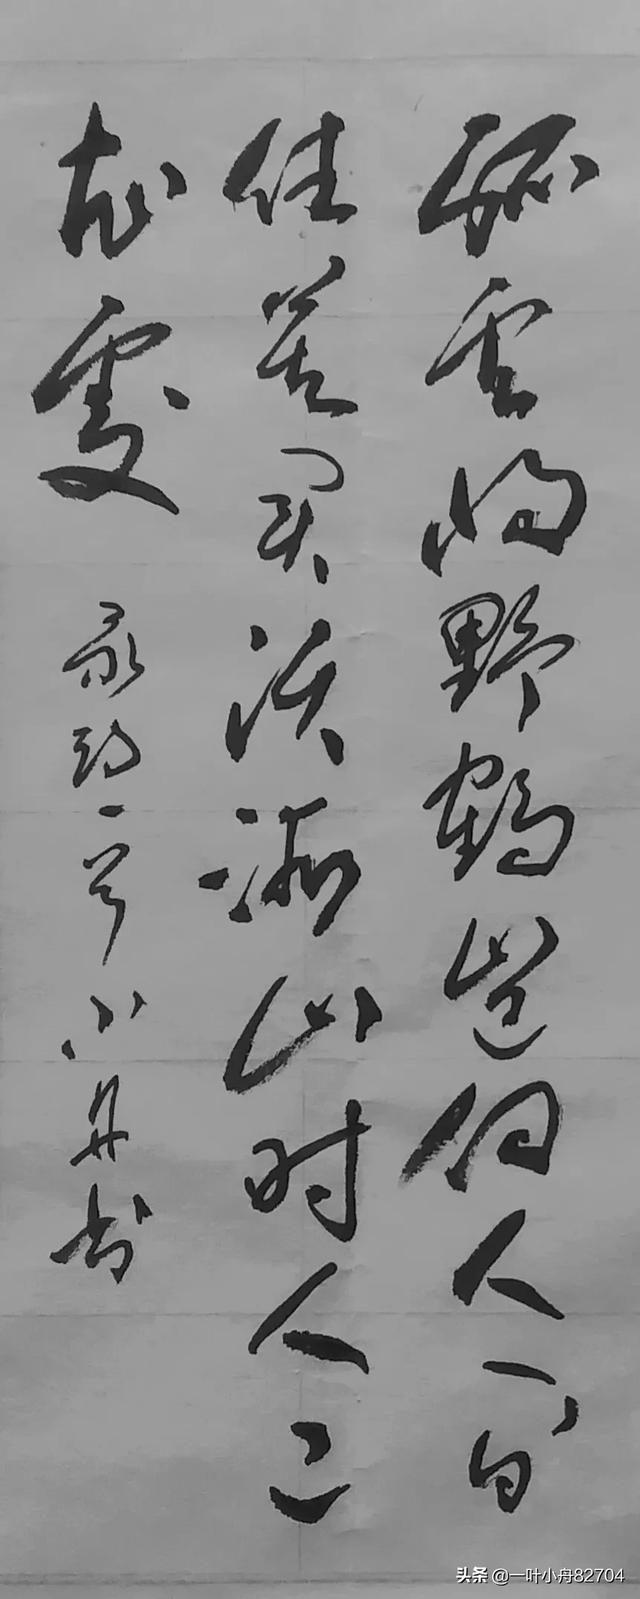 孤云将野鹤岂向人间
住莫买沃洲山时人已
知處
录诗一首小舟书
头条 @一叶小舟82704